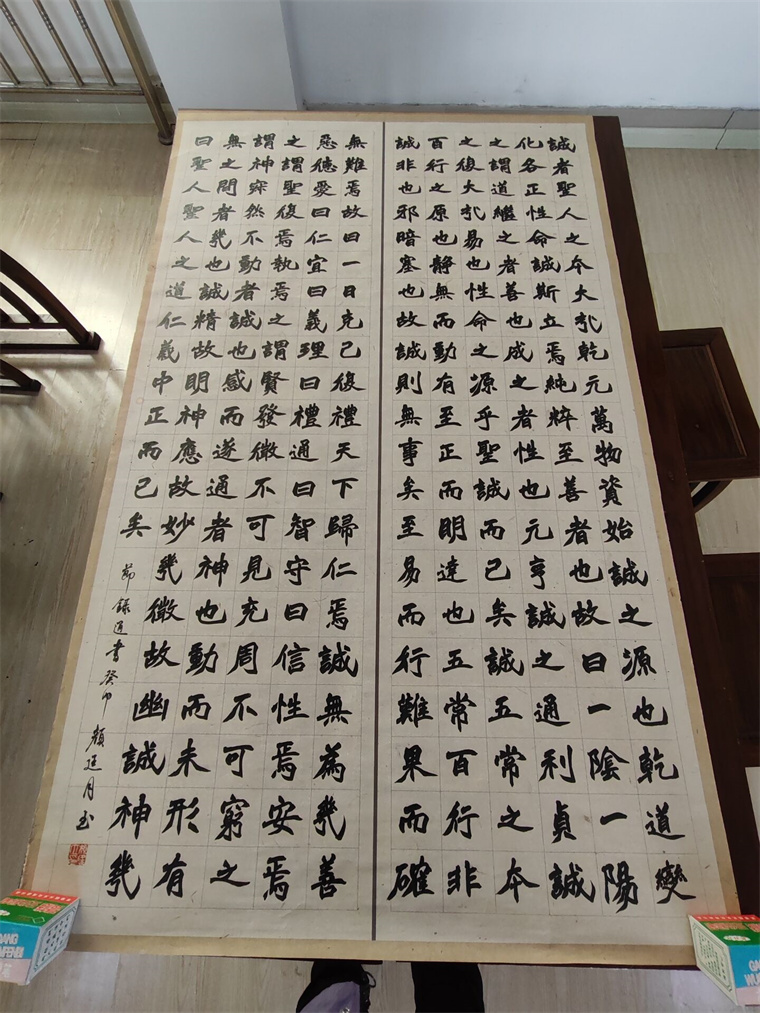 誠者聖人之本大哉乾元萬物資始誠之源也乾道變
化各正性命誠斯立焉純粹至善者也故曰一陰一陽
之謂道繼之者善也成之者性也元亨誠之通利貞誠
之復大哉易也性命之源乎聖誠而已矣誠五常之本
百行之原也静無而動有至正而明達也五常百行非
誠非也邪暗塞也故誠則無事矣至易而行難果而確
無難焉故曰一日克己復禮天下歸仁焉誠無為幾善
惡德愛曰仁宜曰義理曰禮通曰智守曰信性焉安焉
之謂聖復焉執焉之謂賢發微不可見充周不可窮之
謂神寂然不動者誠也感而遂通者神也動而未形有
無之間者幾也誠精故明神應故妙幾微故幽誠神幾
曰聖人聖人之道仁義中正而已矣
節錄通書癸卯 顏廷月書